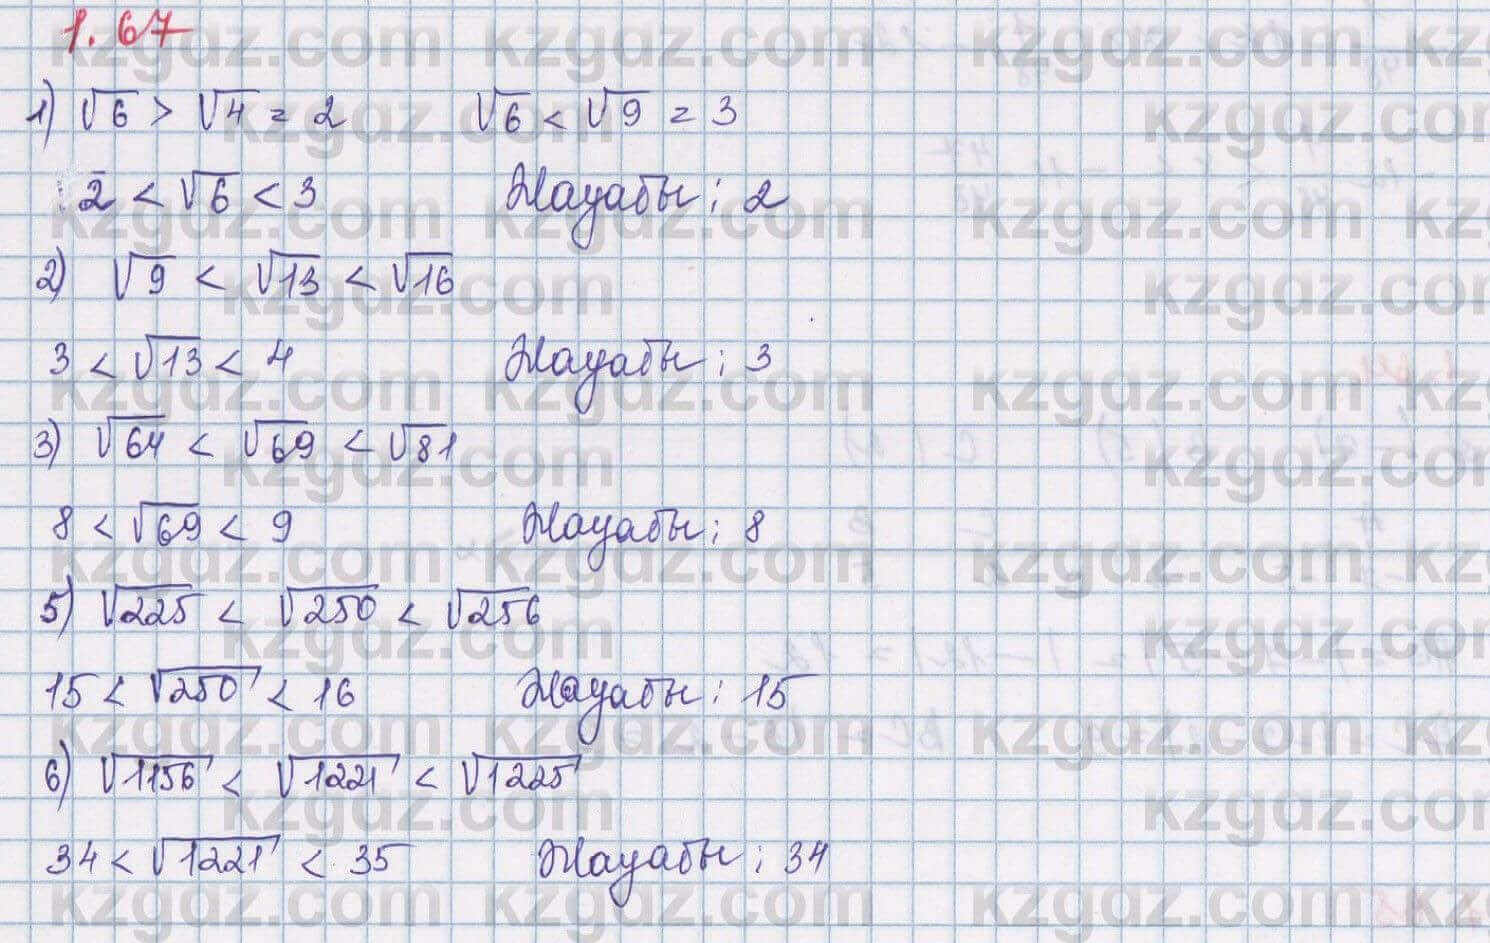 1.67
1) √6 > √4 = 2 √6 < √9 = 3
2 < √6 < 3 Жауабы: 2
2) √9 < √13 < √16
3 < √13 < 4 Жауабы: 3
3) √64 < √69 < √81
8 < √69 < 9 Жауабы: 8
5) √225 < √250 < √256
15 < √250 < 16 Жауабы: 15
6) √1156 < √1221 < √1225
34 < √1221 < 35 Жауабы: 34
kzgdz.com